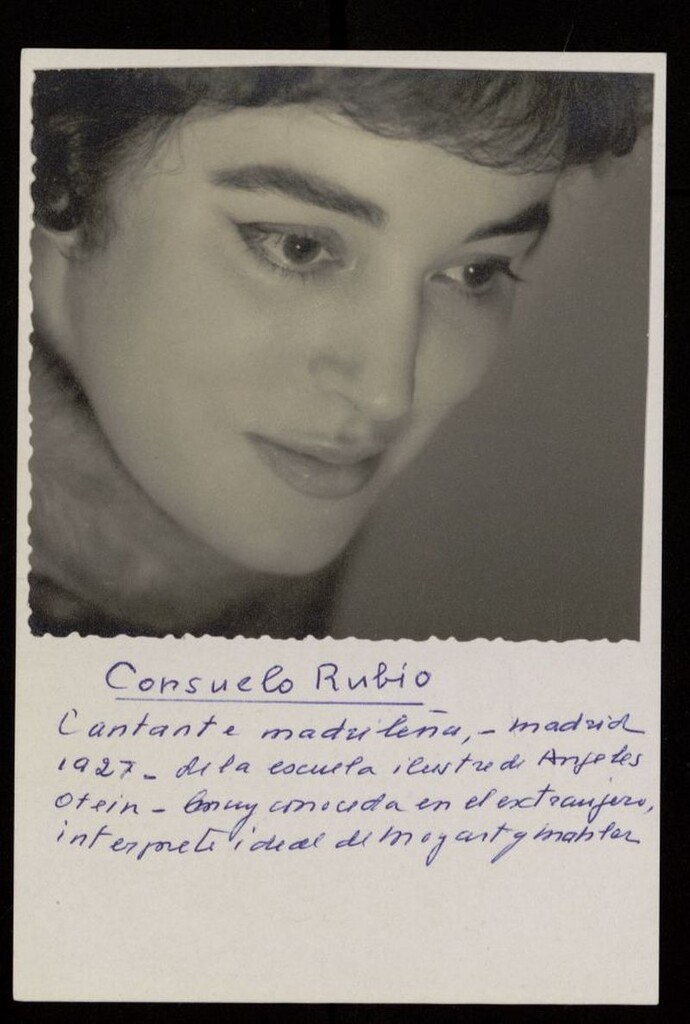 Consuelo Rubio
Cantante madrileña, - madrid
1927 - de la escuela ilustre de Angeles
Otein - muy conocida en el extranjero,
interprete ideal de Mozart y Mahler